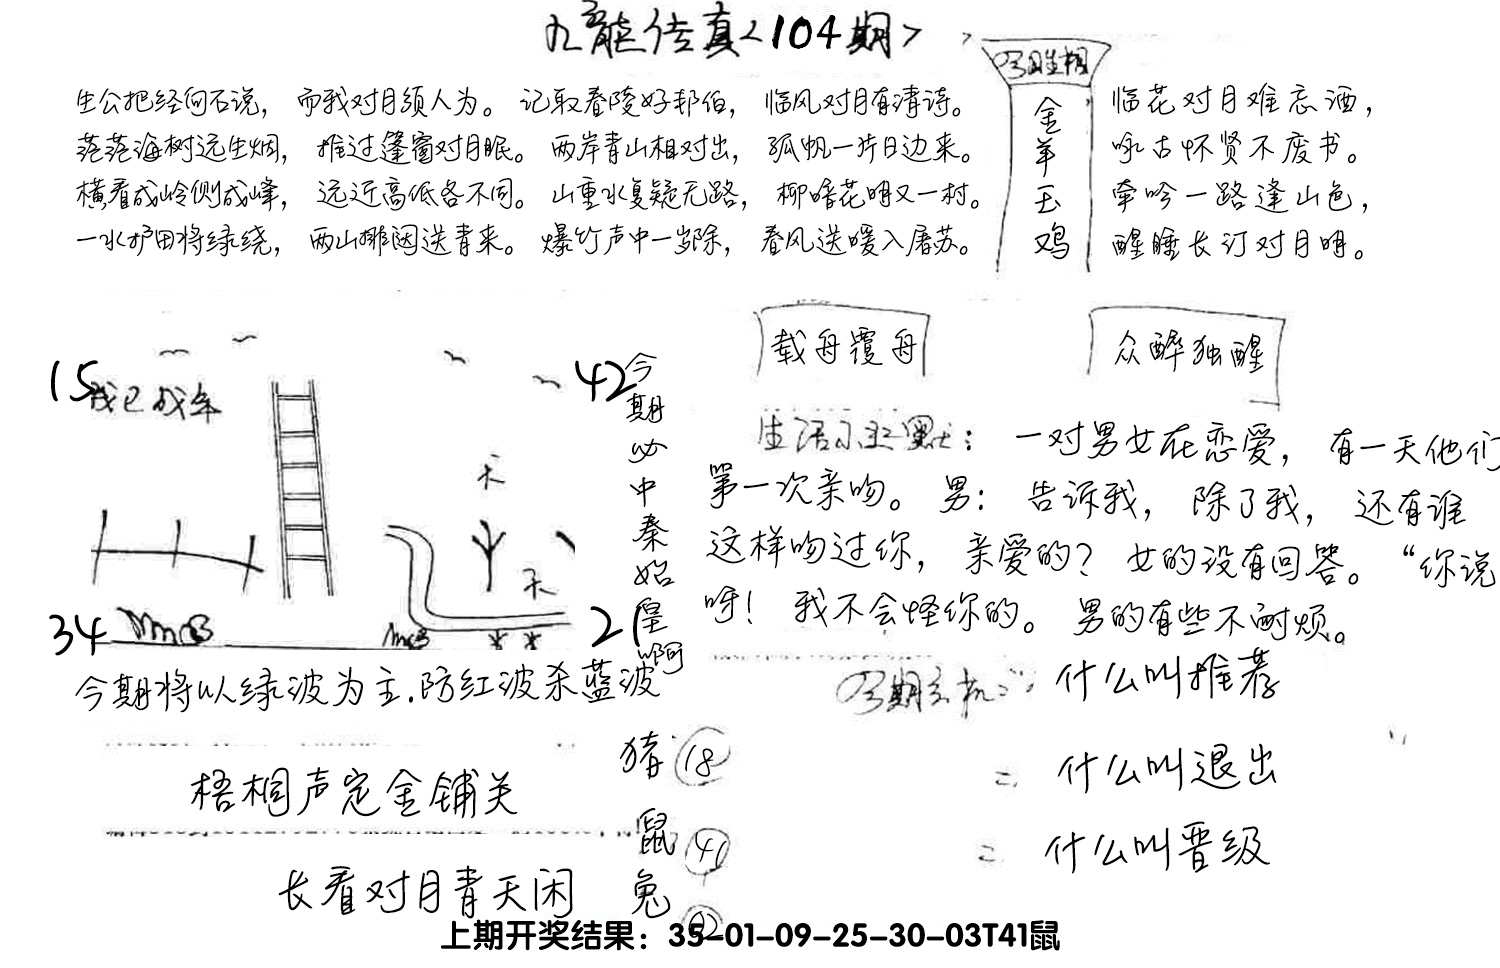 九龙传真<104期>
今日生相
金羊玉鸡
生公把经向石说，而我对月须人为。记取春陵好邦伯，临风对月有清诗。
茫茫海树远生烟，推过篷窗对月眠。两岸青山相对出，孤帆一片日边来。
横看成岭侧成峰，远近高低各不同。山重水复疑无路，柳暗花明又一村。
一水护田将绿绕，两山排闼送青来。爆竹声中一岁除，春风送暖入屠苏。
临花对月难忘酒，
咏古怀贤不废书。
牵吟一路逢山色，
醒睡长订对月明。
15
42
我已成年
天
天
34
21
今期必中秦始皇啊
今期将以绿波为主.防红波杀蓝波
载舟覆舟
众醉独醒
一对男女在恋爱，有一天他们
第一次亲吻。男：告诉我，除了我，还有谁
这样吻过你，亲爱的？女的没有回答。“你说
呀！我不会怪你的。男的有些不耐烦。
今期玄机:
什么叫推荐
= 什么叫退出
= 什么叫晋级
梧桐声定金铺关
长看对月青天闲
猪 18
鼠 41
兔
上期开奖结果：35-01-09-25-30-03T41鼠